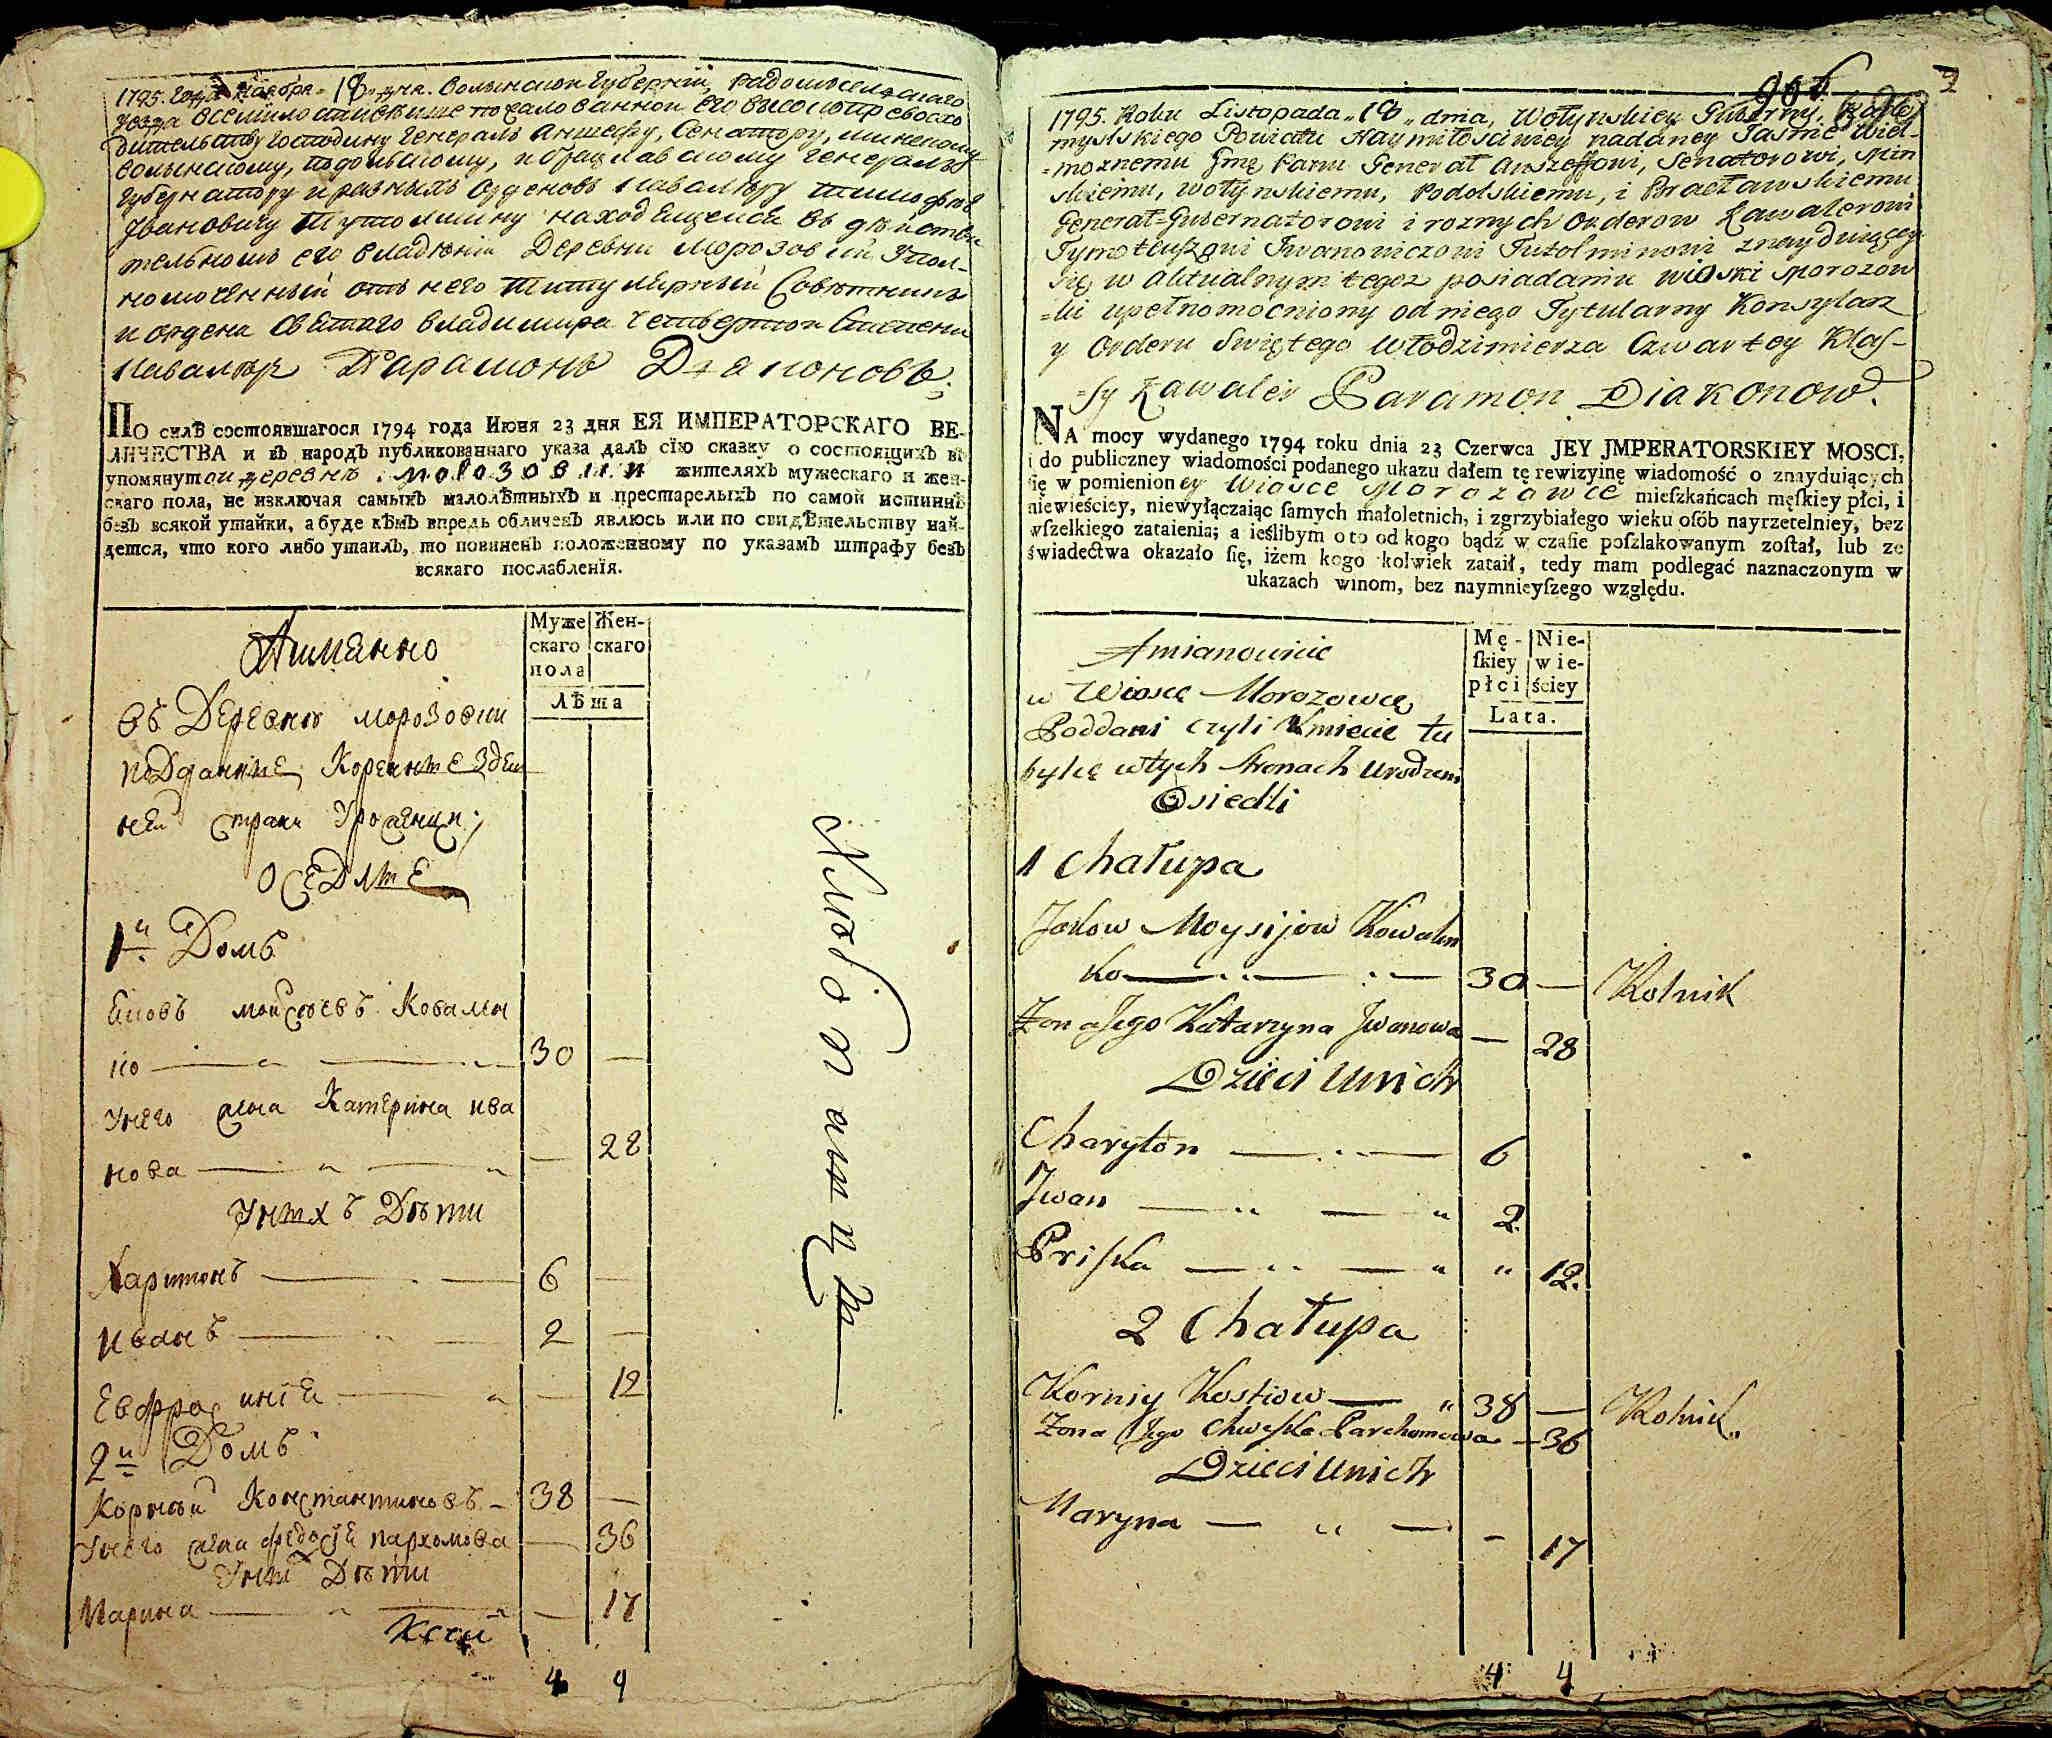 1795. года Ноября 18 дня. Волынской Губерніи, Радомысльскаго
уезда всемилостивейше пожалованной его высокопревосхо
дительству Господину Генералъ Аншефу, Сенатору, минскому
волынскому, подольскому, и брацлавскому Генералъ
Губернатору и разныхъ Орденовъ Кавалеру тимофею
Ивановичу Тутолмину находящейся въ действи
тельномъ его владѣніи Деревни Морозовки Упол-
номоченный отъ него Титулярный Совѣтникъ
и ордена Святаго владимира четвертой Степени
Кавалеръ Парамонъ Дьяконовъ.
ПО силѣ состоявшагося 1794 года Июня 23 дня ЕЯ ИМПЕРАТОРСКАГО ВЕ-
ЛИЧЕСТВА и въ народъ публикованнаго указа далъ сїю сказку о состоящихъ въ
упомянутой деревнѣ Морозовки жителяхъ мужескаго и жен-
скаго пола, не изключая самыхъ малолѣтныхъ и престарелыхъ по самой истиннѣ
безъ всякой утайки, а буде кѣмъ впредь обличенъ явлюсь или по свидѣтельству най-
дется, что кого либо утаилъ, то повиненъ положенному по указамъ штрафу безъ
всякаго послабленїя.
Аимянно
Муже
скаго
пола
Жен-
скаго
Лѣта
въ Деревнѣ Морозовки
подданые Кореиные здеш
ней страны Уроженци;
Оседлые
1й Домъ
Яковъ мойсѣевъ Ковален
ко 30 —
Унего жена Катерина ива
нова — 28
Унихъ Дѣти
Харитонъ 6 —
Иванъ 2 —
Евфросинія — 12
2й Домъ
Корнѣй Константиновъ 38 —
Унего жена федосія пархомова — 36
Унихъ Дѣти
Марина — 17
4 4
Хлебопашцы
906
1795. Roku Listopada „18„ dnia, Wołynskiey Gubernij. Rado
myslskiego Powiatu Naymiłosciwiey nadaney Jasnie Wiel-
=moznemu Jmę Panu Generał Anszeffowi, Senatorowi, Min
skiemu, wołynskiemu, Podolskiemu, i Bracławskiemu
Generał=Gubernatorowi i roznych Orderow Kawalerowi
Tymoteuszowi Jwanowiczowi Tutolminowi znayduiącey
się w aktualnym tegoz posiadaniu wioski Morozow
=ki upełnomocniony od niego Tytularny Konsylarz
y Orderu Swiętego Włodzimierza Czwartey Klas-
=sy Kawaler Paramon Diakonow.
NA mocy wydanego 1794 roku dnia 23 Czerwca JEY JMPERATORSKIEY MOSCI,
i do publiczney wiadomości podanego ukazu dałem tę rewizyinę wiadomość o znayduiących
się w pomienioney Wiosce Morozowce mieſzkańcach męſkiey płci, i
niewieściey, niewyłączaiąc ſamych małoletnich, i zgrzybiałego wieku oſób nayrzetelniey, bez
wſzelkiego zataienia; a ieślibym o to od kogo bądź w czaſie poſzlakowanym zoſtał, lub ze
świadectwa okazało ſię, iżem kogo kolwiek zataił, tedy mam podlegać naznaczonym w
ukazach winom, bez naymnieyſzego względu.
Amianowicie
Mę-
ſkiey
płci
Nie-
wie-
ściey
Lata.
w Wiosce Morozowce
Poddani czyli Kmiecie tu
tylię wtych stronach Urodzeni
Osiedli
1 Chałupa
Jakow Moysijow Kowalen
ko 30 — Rolnik
Zona Jego Katarzyna Jwanowa — 28
Dzieci Unich
Charyton 6
Jwan 2
Priſka 12.
2 Chałupa
Korniy Kostiow 38 — Rolnik
Zona Jego Chweſka Parchomowa — 36
Dzieci Unich
Maryna — 17
4 4